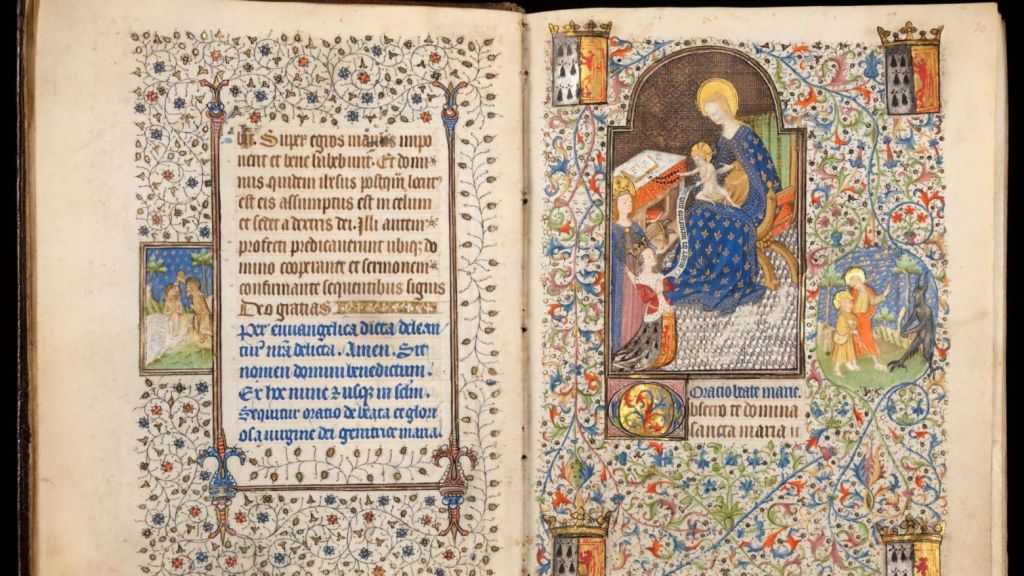 Super egros manus impo
nent et bene habebunt. Et domi
nus quidem ihesus postqm̃ locut9
est eis assumptus est in celum
et sedet a dextris dei. Illi autem
profecti predicauerunt ubiqꝫ do
mino cooperante et sermonem
confirmante sequentibus signis
Deo gratias
Per euuangelica dicta delean
tur nr̃a delicta. Amen. Sit
nomen domini benedictum.
Ex hoc nunc ⁊ usqꝫ in sclm̃.
Sequitur oratio de beata et glori
osa uirgine dei genitrice maria.
dei memento mei
Oratio beate marie.
Obsecro te domina
sancta maria